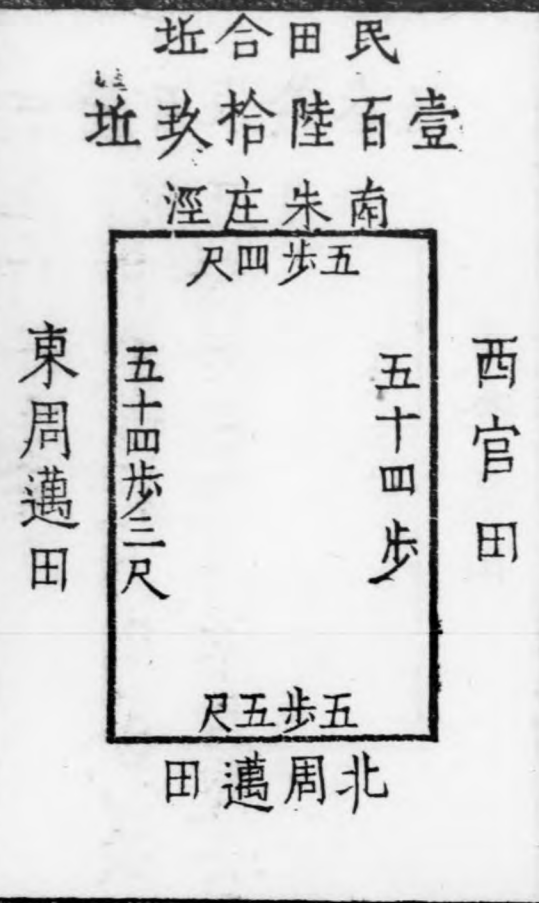 民田合坵
壹百陸拾玖坵
南朱庄涇
五歩四尺
西官田
五十四歩
五十四歩三尺
東周邁田
五歩五尺
北周邁田